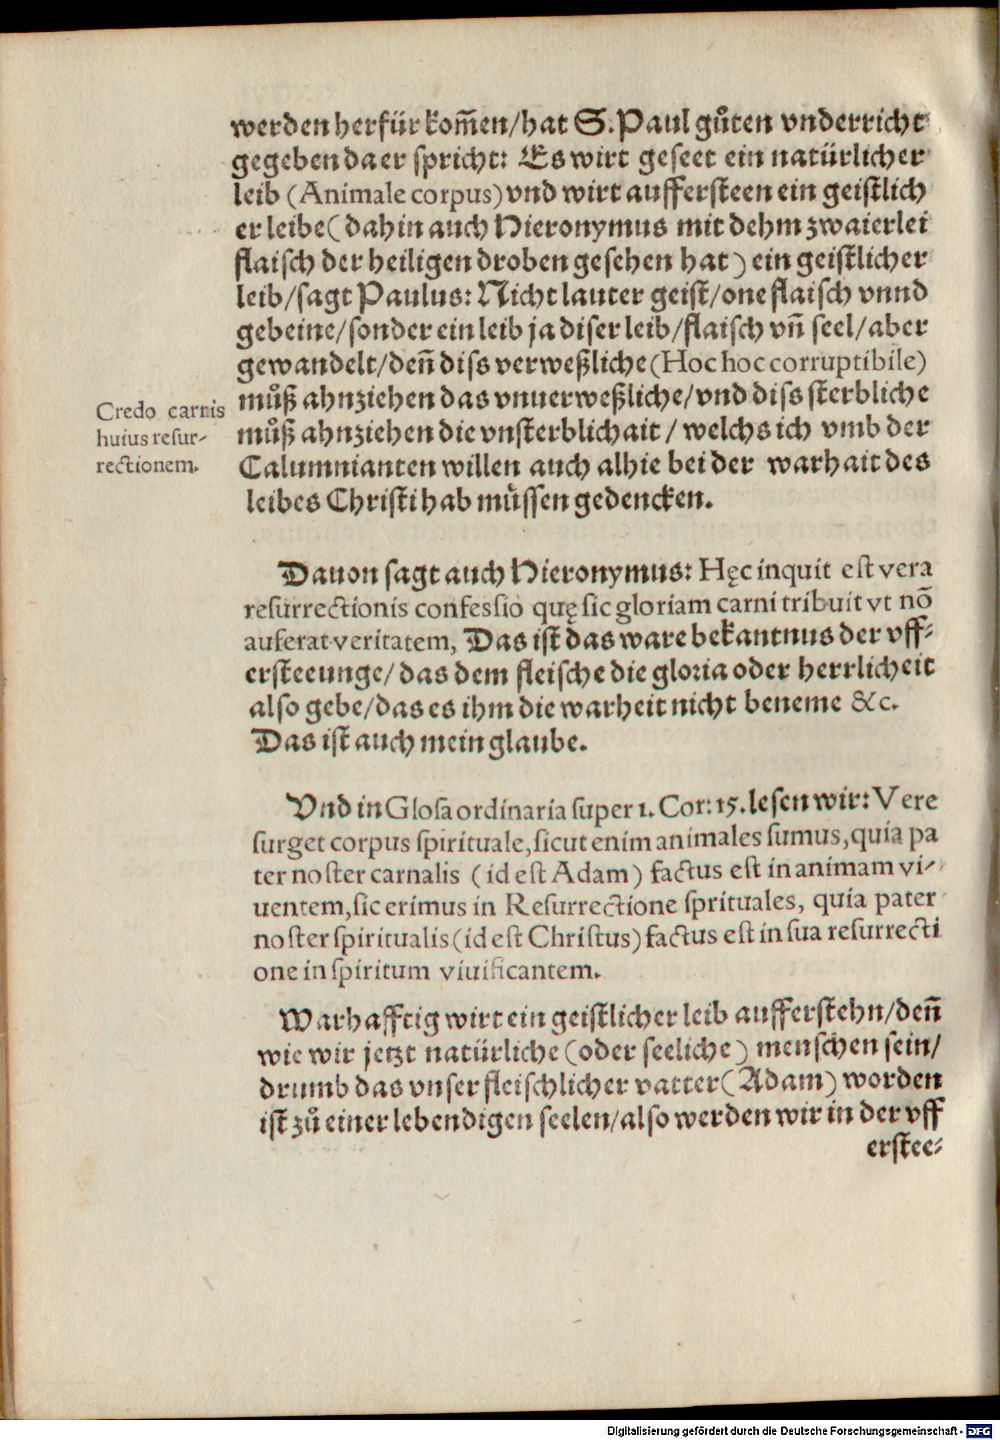 werden herfür kom̃en/hat S. Paul gůten vnderricht
gegeben da er spricht: Es wirt geseet ein natürlicher
leib (Animale corpus) vnd wirt auffersteen ein geistlich
er leibe (dahin auch Hieronymus mit dehm zwaierlei
flaisch der heiligen droben gesehen hat) ein geistlicher
leib/sagt Paulus: Nicht lauter geist/one flaisch vnnd
gebeine/sonder ein leib ja diser leib/flaisch vñ seel/aber
gewandelt/deñ diss verweßliche (Hoc hoc corruptibile)
můß ahnziehen das vnuerweßliche/vnd diss sterbliche
můß ahnziehen die vnsterblichait/welchs ich vmb der
Calumnianten willen auch alhie bei der warhait des
leibes Christi hab müssen gedencken.
Credo carnis
huius resur-
rectionem.
Dauon sagt auch Hieronymus: Hęc inquit est vera
resurrectionis confessio quę sic gloriam carni tribuit vt nõ
auferat veritatem, Das ist das ware bekantnus der vff-
ersteeunge/das dem fleische die gloria oder herrlicheit
also gebe/das es ihm die warheit nicht beneme &c.
Das ist auch mein glaube.
Vnd in Glosa ordinaria super 1. Cor: 15. lesen wir: Vere
surget corpus spirituale, sicut enim animales sumus, quia pa
ter noster carnalis (id est Adam) factus est in animam vi-
uentem, sic erimus in Resurrectione sprituales, quia pater
noster spiritualis (id est Christus) factus est in sua resurrecti
one in spiritum viuificantem.
Warhafftig wirt ein geistlicher leib aufferstehn/deñ
wie wir jetzt natürliche (oder seeliche) menschen sein/
drumb das vnser fleischlicher vatter (Adam) worden
ist zů einer lebendigen seelen/also werden wir in der vff
erstee-
Digitalisierung gefördert durch die Deutsche Forschungsgemeinschaft - DFG